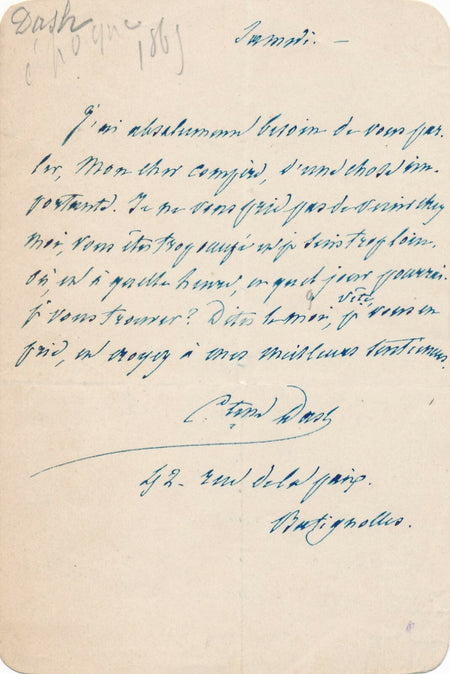 Dash
époque 1865
Samedi. —
J'ai absolument besoin de vous par-
ler, Mon cher confrère, d'une chose im-
portante. Je ne vous prie pas de venir chez
moi, vous êtes trop occupé et je suis trop loin.
Où, et à quelle heure, et quel jour pourrai-
je vous trouver? Dites le moi, vite, je vous en
prie, et croyez à mes meilleurs sentiments.
Ctesse Dash
42 - rue de la paix.
Batignolles.